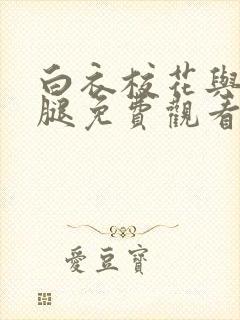 白衣校花與
腿免費觀看
愛豆寶